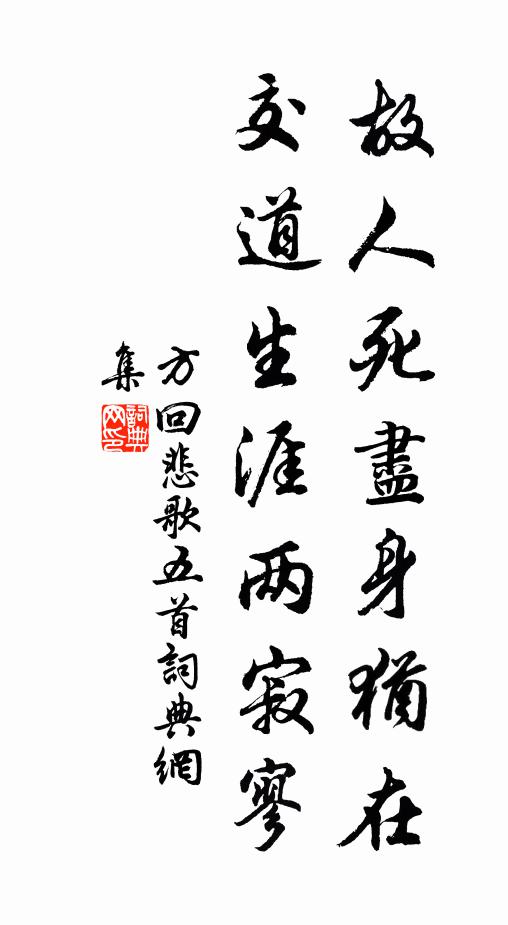 故人死盡身猶在
交道生涯两寂寥
方回悲歌五首詞典網
集
詞典
网印